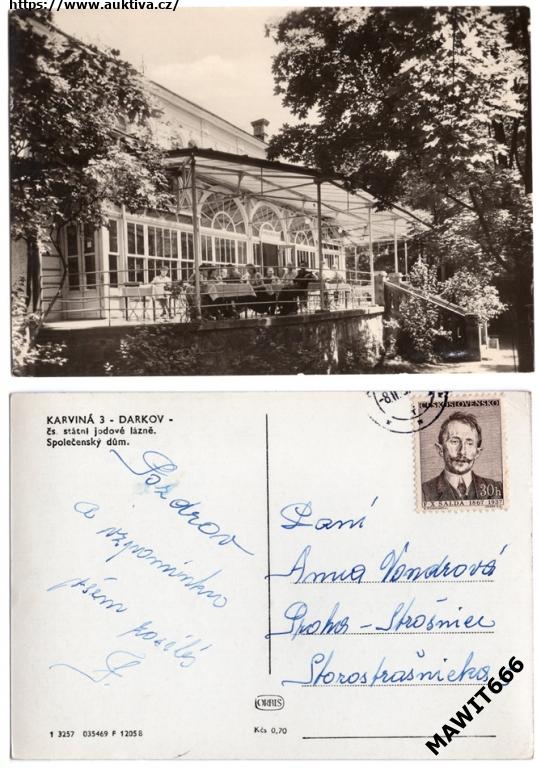 https://www.auktiva.cz/
KARVINÁ 3 - DARKOV -
čs. státní jodové lázně.
Společenský dům.
Pozdrav
a vzpomínku
všem posílá
-8.II.
ČESKOSLOVENSKO
30h
F.X. ŠALDA 1867-1937
Paní
Anna Vondrová
Praha - Strašnice
Starostrašnická
ORBIS
Kčs 0,70
1 3257 035469 F 12058
MAWIT666